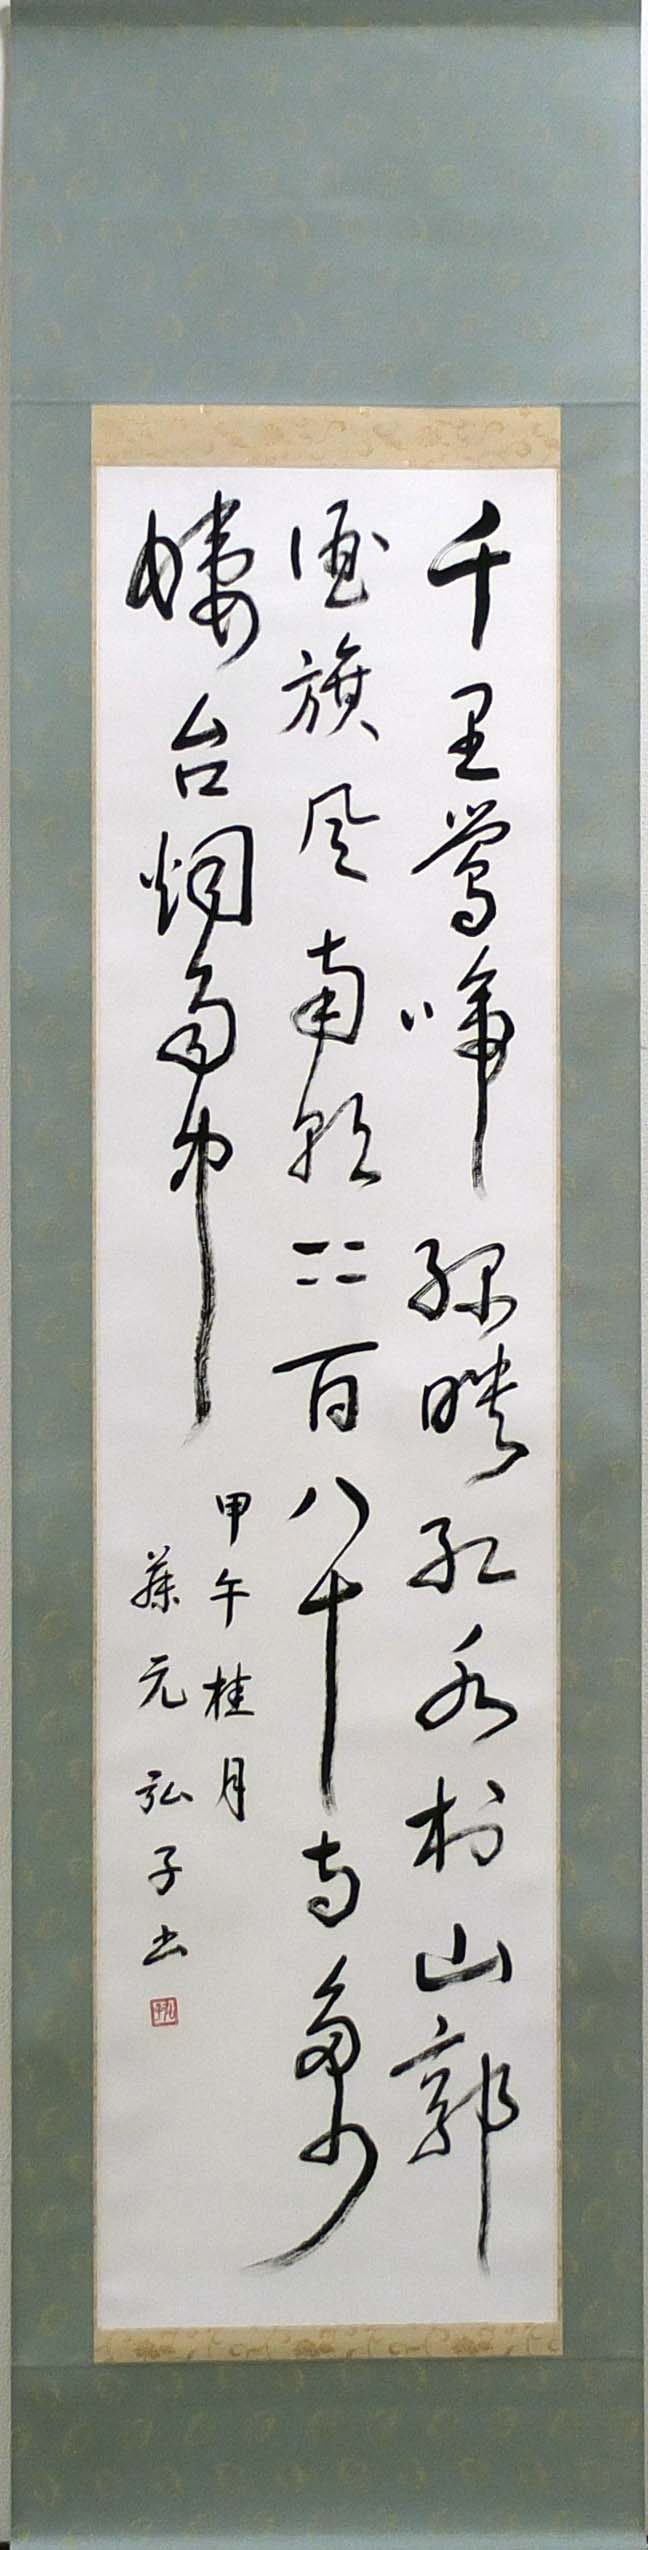 千里鶯啼緑暎紅水村山郭
酒旗風南朝四百八十寺多少
楼台烟雨中
甲午桂月
藤元弘子書